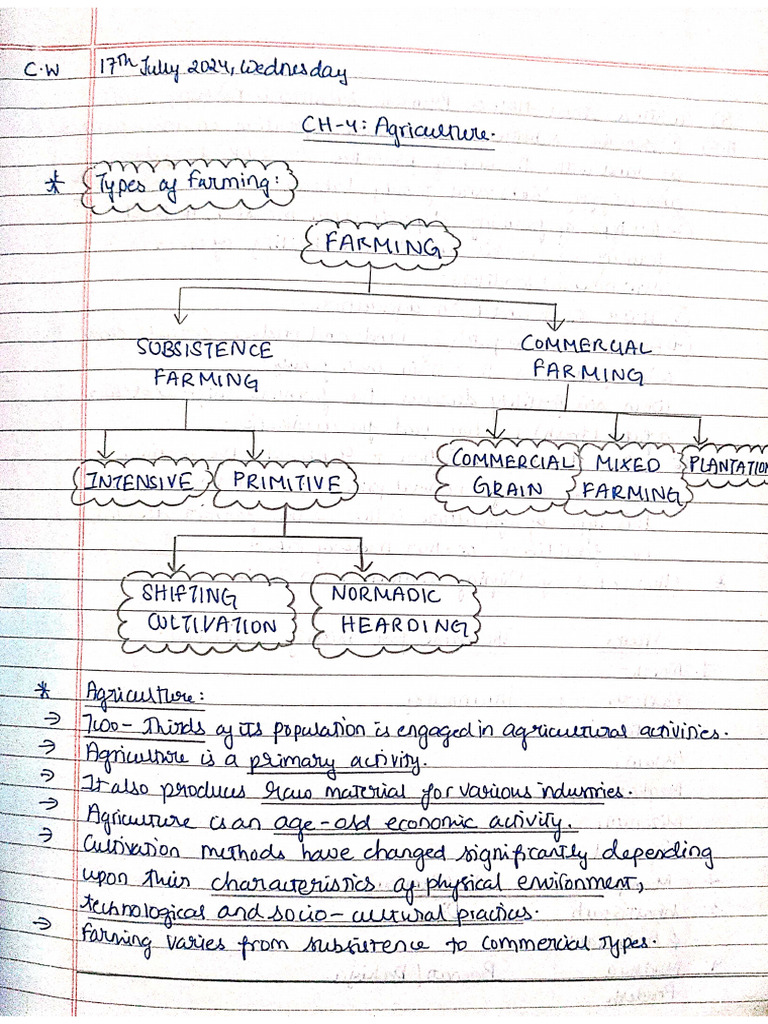 C.W 17th July 2024, Wednesday
CH-4: Agriculture.
* Types of farming:
FARMING
SUBSISTENCE FARMING
COMMERCIAL FARMING
INTENSIVE
PRIMITIVE
COMMERCIAL GRAIN
MIXED FARMING
PLANTATION
SHIFTING CULTIVATION
NORMADIC HEARDING
* Agriculture:
→ Two-thirds of its population is engaged in agricultural activities.
→ Agriculture is a primary activity.
→ It also produces raw material for various industries.
→ Agriculture is an age-old economic activity.
→ Cultivation methods have changed significantly depending
upon their characteristics of physical environment,
technological and socio-cultural practices.
→ Farming varies from subsistence to commercial types.